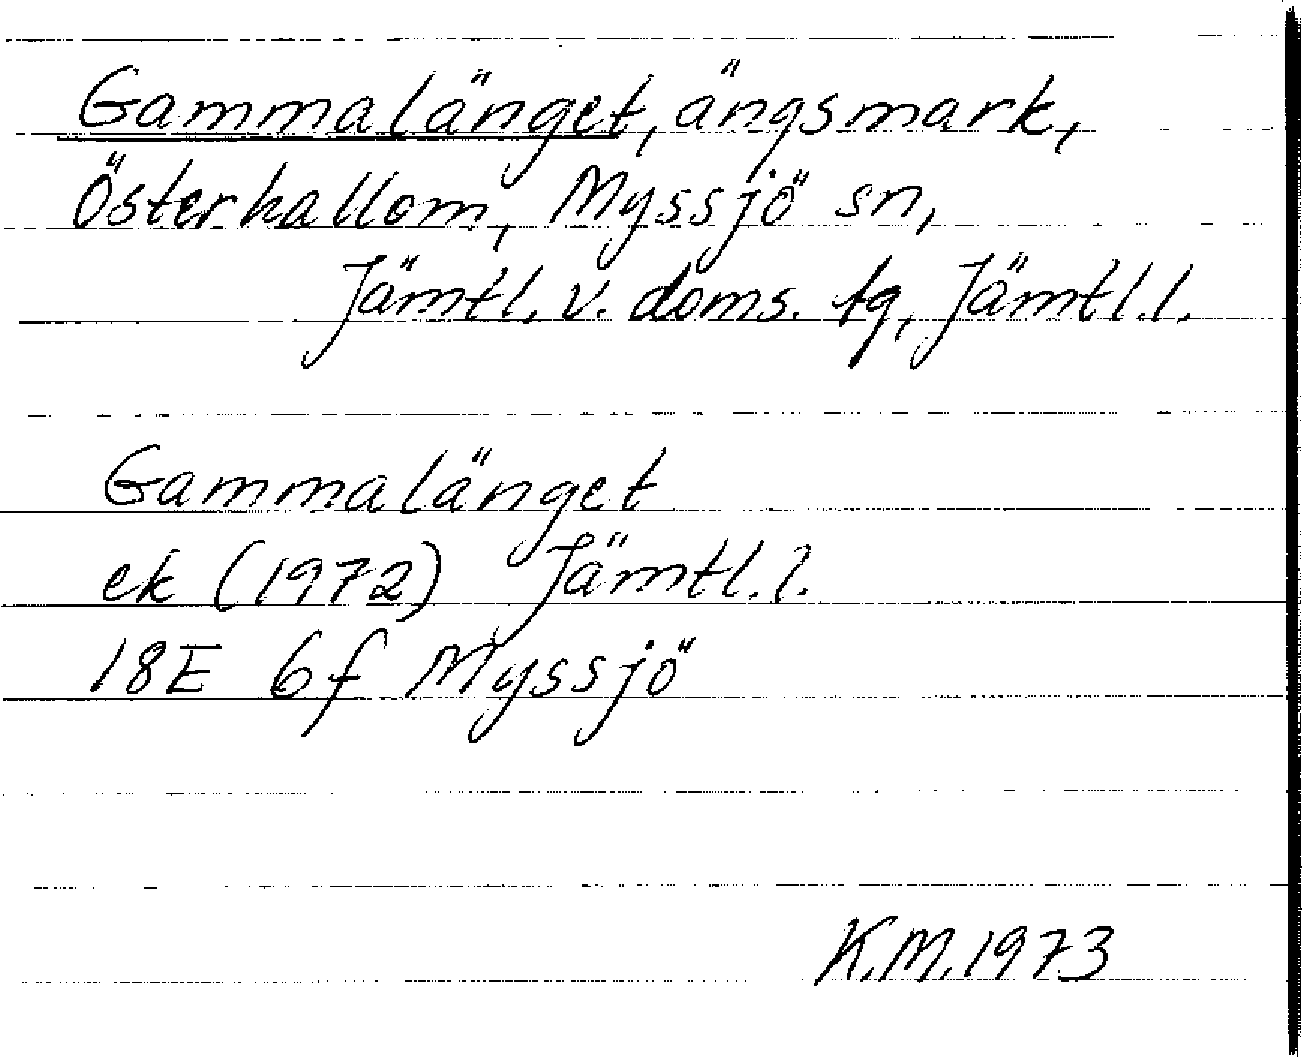 Gammalänget, ängsmark,
Österhallom, Myssjö sn,
Jämtl. v. doms. tg, Jämtl.l.
Gammalänget
ek (1972) Jämtl.l.
18E 6f Myssjö
K.M. 1973